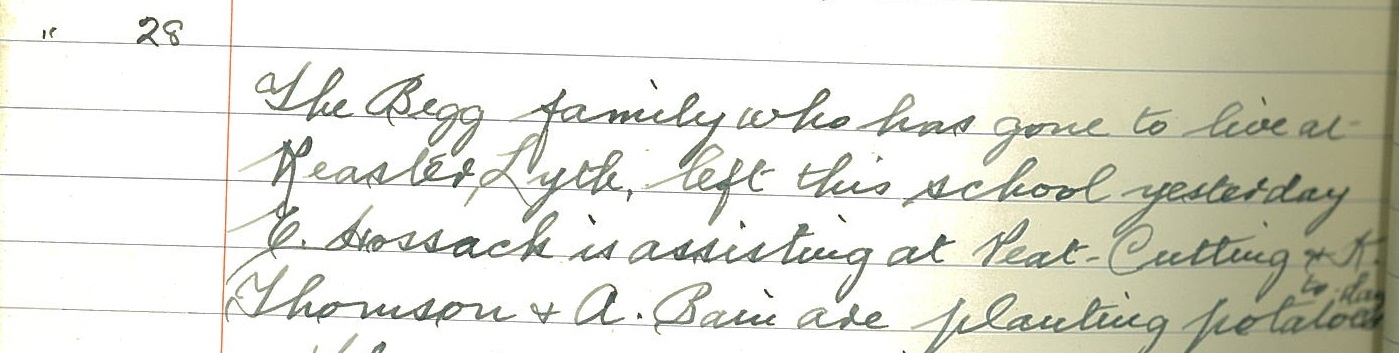 " 28
The Begg family who has gone to live at
Keaster, Lyth, left this school yesterday
E. Hossack is assisting at Peat-Cutting & K.
Thomson & A. Bain are planting potatoes to-day